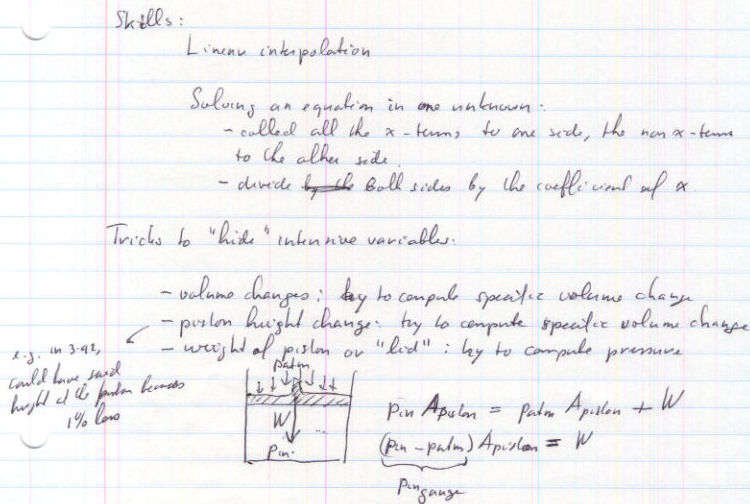 Skills:
Linear interpolation
Solving an equation in one unknown.
- collect all the x-terms to one side, the non x-terms
to the other side.
- divide by the both sides by the coefficient of x.
Tricks to "hide" intensive variables.
- volume changes: try to compute specific volume change
- piston height change: try to compute specific volume change
- weight of piston or "lid": try to compute pressure
e.g. in 3.92,
could have said
height of the piston becomes
1% less
patm
W
pin.
...
pin Apiston = patm Apiston + W
(pin - patm) Apiston = W
pin gauge